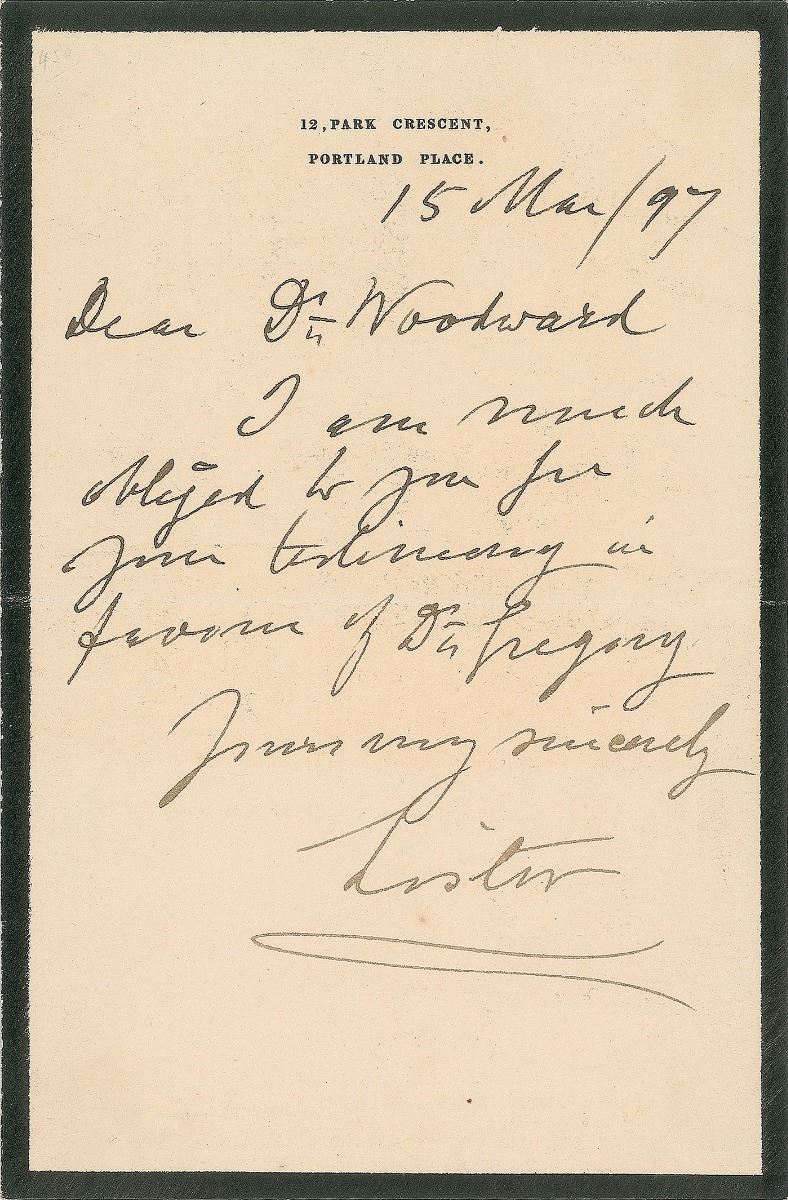 12, PARK CRESCENT,
PORTLAND PLACE.
15 Mar/97
Dear Dr. Woodward
I am much
obliged to you for
your testimony in
favour of Dr. Gregory
Yours very sincerely
Lister